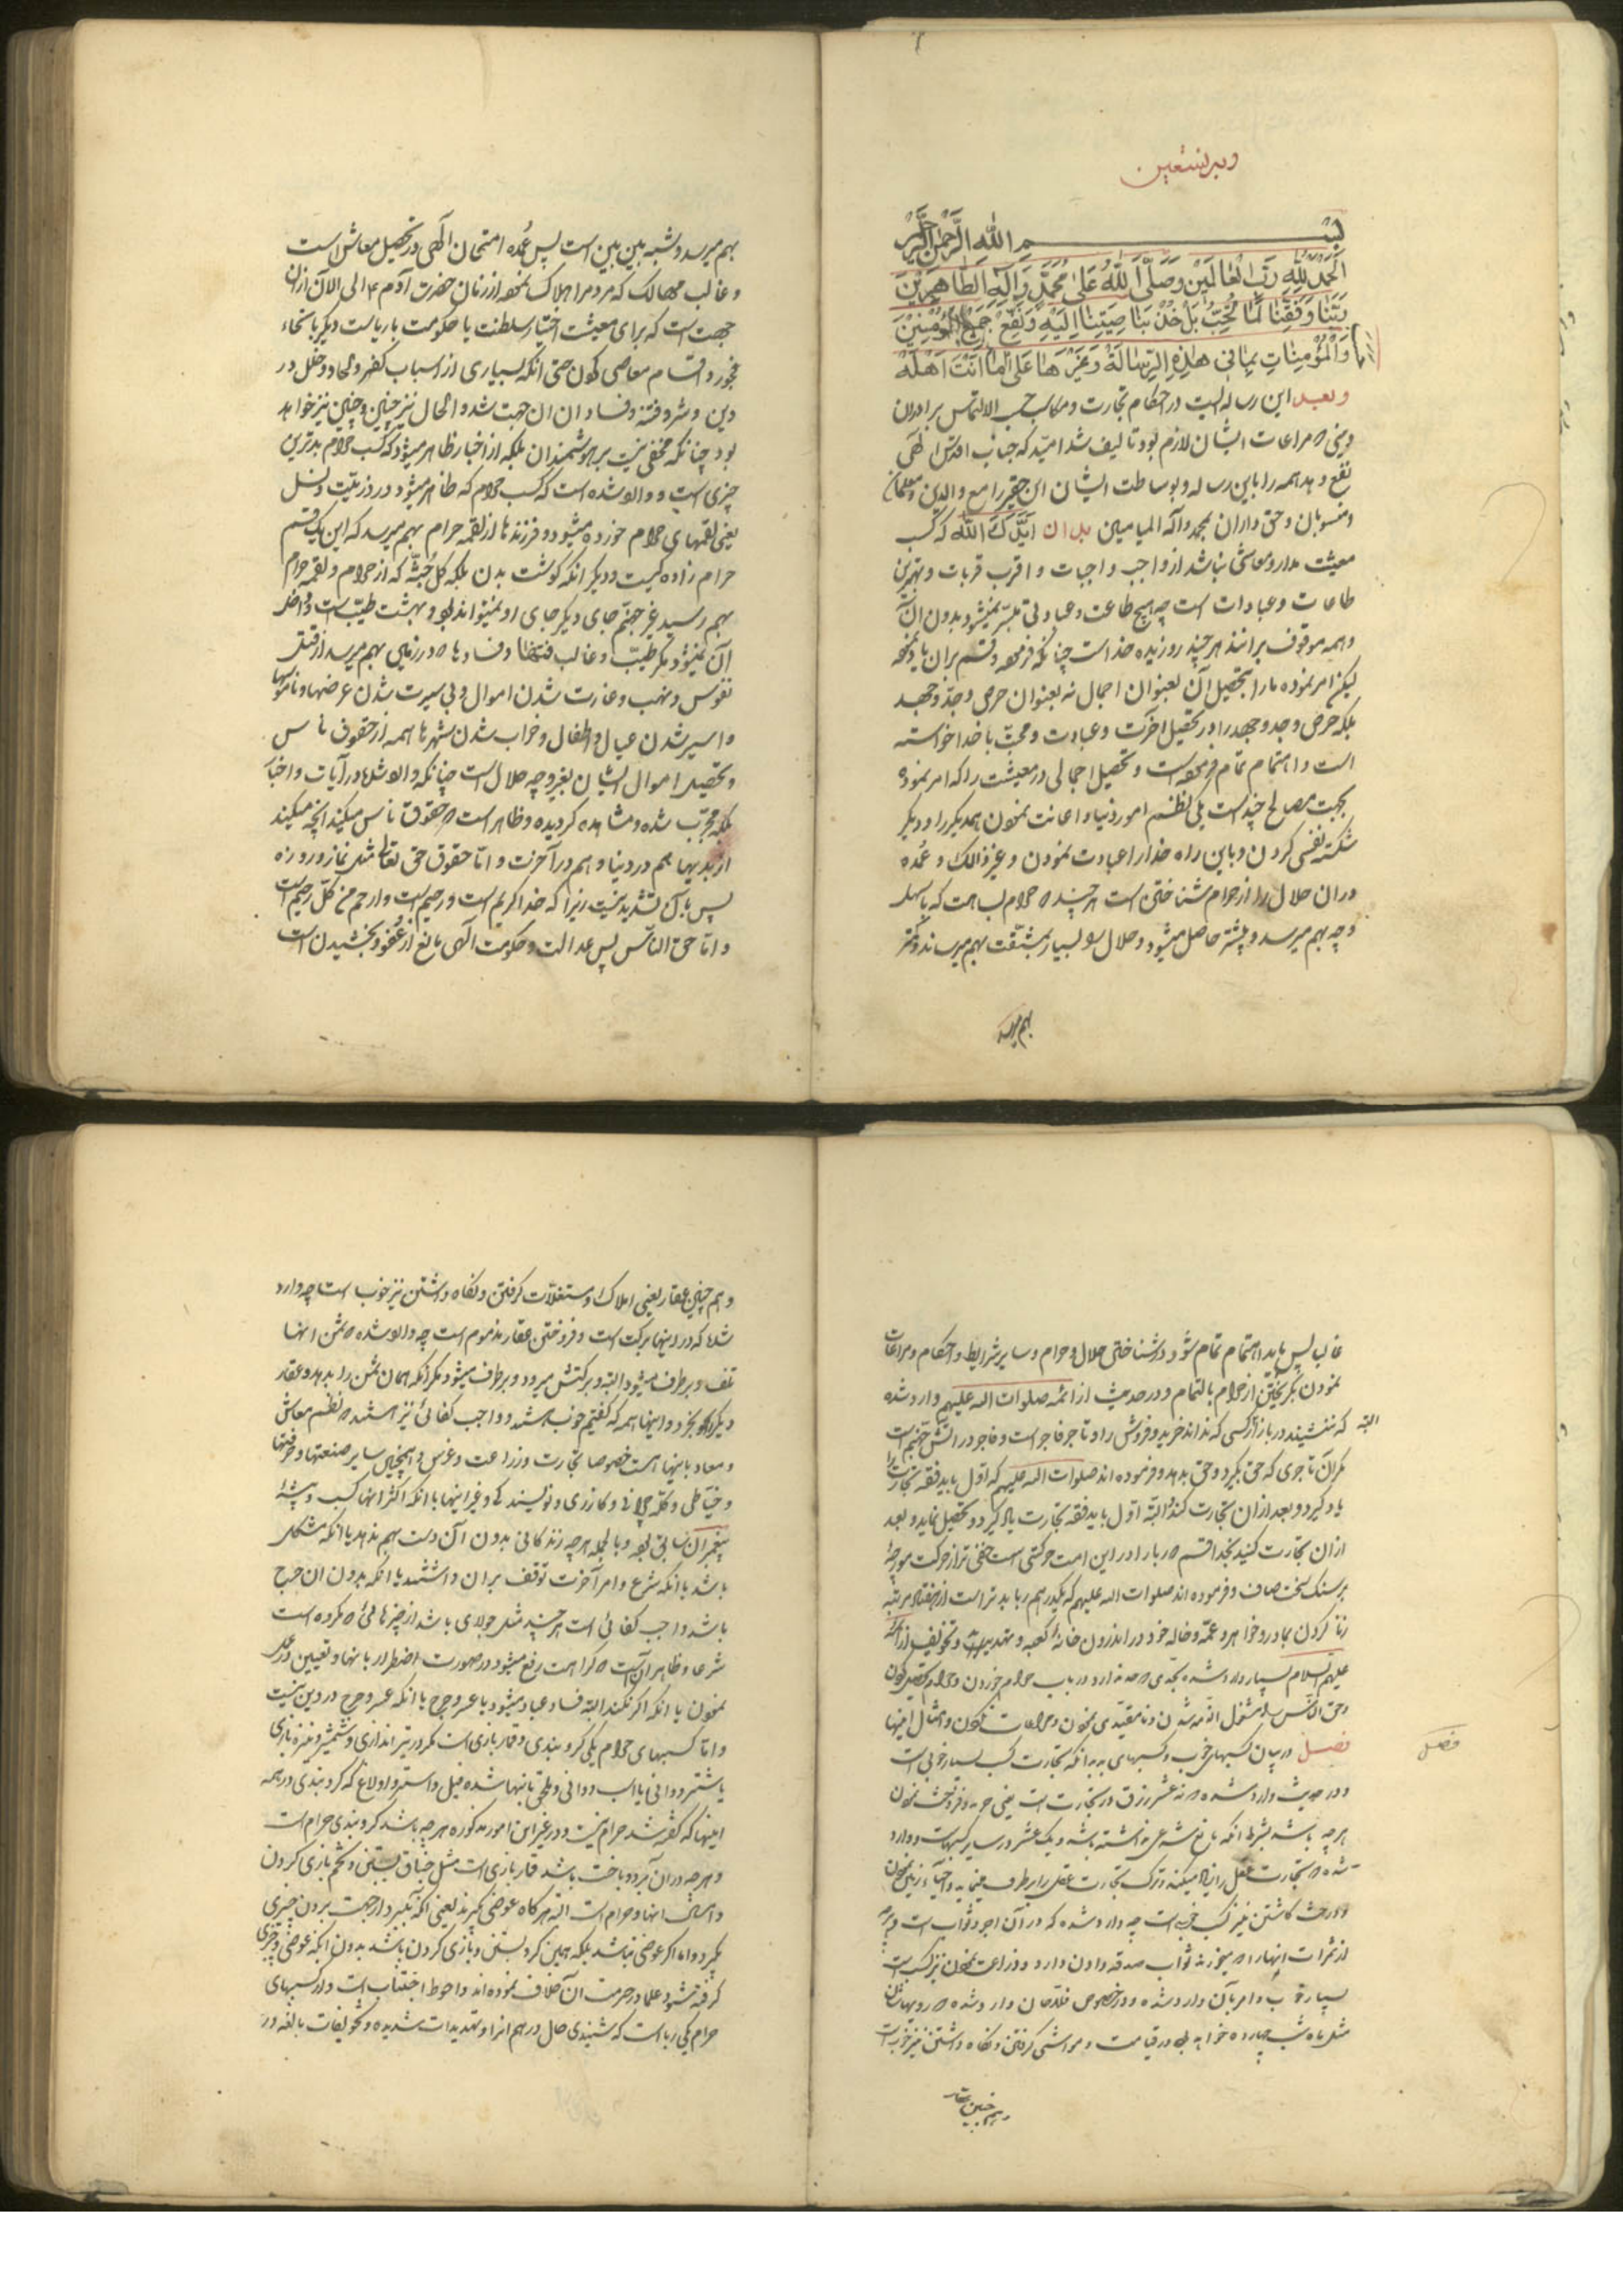 وبه نستعین
بسم الله الرحمن الرحیم
اَلْحَمْدُ لِلّٰهِ رَبِّ الْعٰالَمینَ وَصَلَّی اللّٰهُ عَلیٰ مُحَمَّدٍ وَآلِهِ الطّٰاهِرینَ
رَبَّنٰا وَفِّقْنٰا لِمٰا تُحِبُّ بَلْ خُذْ بِنَا صِیَتِنٰا اِلَیْهِ وَنَفِّعْ جَمیعَ الْمُؤْمِنینَ
وَالْمُؤْمِنٰاتِ بِمٰا فی هٰذِهِ الرِّسٰالَةِ وَ عَلیٰ مٰا اَنْتَ اَهْلُهُ
وبعد این رساله ایست در احکام تجارت ومکاسب حسب الالتماس برادران
دینی که مراعات ایشان لازم بود تالیف شد امید که جناب اقدس الهی
نفع دهد همه را باین رساله وبوساطت ایشان این حقیر را مع والدین ومعلمان
ومنسوبان وحق داران بمحمد وآله المیامین بدان ایدک الله که کسب
معیشت مدار ومعاشی نباشد از واجب واجبات و اقرب قربات و بهترین
طاعات وعبادات است چه هیچ طاعت وعبادتی میسر نمیشود بدون آن
وهمه موقوف برانند هرچند روزی ده خداست چنانکه فرموده وقسم بران یاد نموده
لیکن امر نموده ما را بتحصیل آن بعنوان اجمال نه بعنوان حرص وجد وجهد
بلکه حرص وجد وجهد را در تحصیل آخرت وعبادت ومحبت با خدا خواسته
است واهتمام تمام فرموده است وتحصیل اجمالی در معیشت را که امر نموده
بجهت مصالح چند است یکی نظم امور دنیا واعانت نمودن همدیگر را ودیگر
شکسته نفسی کردن وباین راه خدا را عبادت نمودن وغیر ذالک وعمده
دران حلال را از حرام شناختن است هرچند که حرام بسا هست که باسهل
وجه بهم میرسد وبیشتر حاصل میشود وحلال او بسیار بمشقت بهم میرساند وکمتر
بهم میرسد
بهم میرسد وشبهه بین بین است پس عمده امتحان الهی در تحصیل معاش است
وغالب مهالک که مردم را هلاک نموده از زمان حضرت آدم ع الی الآن ازان
جهت است که برای معیشت اختیار سلطنت یا حکومت یا ریاست دیگر یا انحاء
فجور واقسام معاصی کردن حتی آنکه بسیاری از اسباب کفر والحاد وخلل در
دین وشر وفتنه وفساد ازان جهت شد والحال نیز چنین وچنین نیز خواهد
بود چنانکه مخفی نیست بر هوشمندان بلکه از اخبار ظاهر میشود که کسب حرام بدترین
چیزی است و وارد شده است که کسب حرام که ظاهر میشود در ذریت ونسل
یعنی لقمهای حرام خورده میشود وفرزندها از لقمه حرام بهم میرسد که این یک قسم
حرام زاده گیست ودیگر آنکه گوشت بدن بلکه کل جثه که از حرام ولقمه حرام
بهم رسید غیر جهنم جای دیگر جای او نمیتواند بود وبهشت طیب است وداخل
آن نمیشود مگر طیب وغالب فتنها وفسادها که در زمین بهم میرسد از قتل
نفوس ونهب وغارت شدن اموال وبی سیرت شدن عرضها وناموسها
واسیر شدن عیال واطفال وخراب شدن شهرها همه از حقوق ناس
وتحصیل اموال ایشان بغیر وجه حلال است چنانکه وارد شده در آیات واخبار
بلکه مجرب شده ومشاهده گردیده وظاهر است که حقوق ناس میکند آنچه میکند
از بدیها هم در دنیا وهم در آخرت واما حقوق حق تعالی مثل نماز وروزه
پس بآن تشدید نیست زیرا که خدا کریم است ورحیم است وارحم من کل رحیم است
واما حق الناس پس عدالت وحکومت الهی مانع از عفو وبخشیدن است
غالب پس باید اهتمام تمام شود در شناختن حلال وحرام وسایر شرایط واحکام ومراعات
نمودن بگریختن از حرام بالتمام ودر حدیث از ائمه صلوات الله علیهم وارد شده
البته که ننشیند در بازار کسی که نداند خرید وفروش را وتاجر فاجر است وفاجر در آتش جهنم است
مگر آن تاجری که حق بگیرد وحق بدهد وفرموده اند صلوات الله علیهم که اول باید فقه تجارت را
یاد گیرد وبعد ازان تجارت کند البته اول باید فقه تجارت یاد گیرد وتحصیل نماید وبعد
ازان تجارت کنید بخدا قسم که ربا را در این امت حرکتی است خفی تر از حرکت مورچه
بر سنگ سخت صاف وفرموده اند صلوات الله علیهم که یکدرهم ربا بدتر است از هفتاد مرتبه
زنا کردن بمادر وخواهر وعمه وخاله خود در اندرون خانه کعبه وتهدید وتخویف از ائمه
علیهم السلام بسیار وارد شده بحدی که حد ندارد در باب حرام خوردن وحرام تحصیل کردن
وحق الناس را مشغول الذمه شدن ونامقیدی نمودن ومراعات نکردن وامثال اینها
فصل در بیان کسبهای خوب وکسبهای بد بدانکه تجارت کسب بسیار خوبی است
فصل
ودر حدیث وارد شده که نه عشر رزق در تجارت است یعنی خرید وفروخت نمودن
هرچه باشد بشرط آنکه مانع شرعی نداشته باشد ویک عشر در سایر کسبهاست ووارد
شده که تجارت عقل را زیاد میکند وترک تجارت عقل را برطرف مینماید واحیاء زمین نمودن
ودرخت کاشتن نیز کسب خوب است چه وارد شده که در آن اجر وثواب است وهرچه
از ثمرات اینها را که میخورند ثواب صدقه دادن دارد وزراعت نمودن نیز کسب است
بسیار خوب وامر بآن وارد شده ودر خصوص فلاحان وارد شده که رویهاشان
مثل ماه شب چهارده خواهد بود در قیامت ومواشی گرفتن ونگاه داشتن نیز خوب است
وهم چنین عقار
وهم چنین عقار یعنی املاک ومستغلات گرفتن ونگاه داشتن نیز خوب است چه وارد
شده که در اینها برکت است وفروختن عقار مذموم است چه وارد شده که ثمن اینها
تلف وبرطرف میشود البته وبرکتش میرود وبرطرف میشود مگر آنکه همان ثمن را بدهد وعقار
دیگر بخرد واینها همه که گفتیم خوب هستند وواجب کفائی نیز هستند که نظم معاش
ومعاد باینها است خصوصا تجارت وزراعت وغرس وهمچنین سایر صنعتها وحرفتها
وخیاطی وگله چرانی وگازری ونویسندگی وغیر اینها با آنکه اکثر اینها کسب وپیشه
پیغمبران سابق بود وبالجمله هرچه زندگانی بدون آن دست بهم ندهد یا آنکه مشکل
باشد یا آنکه شرع وامر آخرت توقف بران داشته باشد یا آنکه بدون ان حرج
باشد واجب کفائی است هرچند مثل جولاهی باشد از چیزهائی که مکروه است
شرعا وظاهر آن است که کراهت رفع میشود در صورت اضطرار بانها وتعیین در عمل
نمودن یا آنکه اگر نکنند البته فساد عباد میشود یا عسر وحرج با آنکه عسر وحرج در دین نیست
واما کسبهای حرام یکی گرو بندی وقمار بازی است مگر در تیر اندازی وشمشیر ونیزه بازی
یا شتر دوانی یا اسب دوانی وملحق باینها شده فیل واستر واولاغ که گرو بندی در همه
اینها که گفته شد حرام نیست ودر غیر این امور مذکوره هرچه باشد گرو بندی حرام است
وهرچه در آن برد وباخت باشد قمار بازی است مثل جناق بستن وتخم بازی کردن
وامثال اینها وحرام است البته هرگاه عوضی گیرند یعنی آنکه ببرد از جهت بردن چیزی
بگیرد واما اگر عوضی نباشد بلکه همین گرو بستن وبازی کردن باشد بدون آنکه عوضی وچیزی
گرفته شود علما در حرمت آن خلاف نموده اند واحوط اجتناب است واز کسبهای
حرام یکی ربا است که شنیدی حال درهم آنرا وتهدیدات شدیده وتخویفات بالغه در